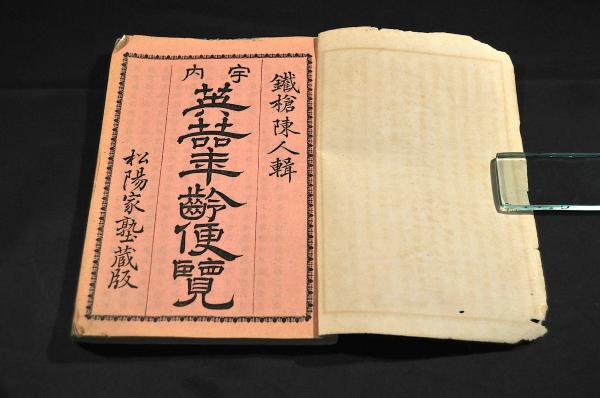 鐵槍陳人輯
宇内
英嚞年齡便覽
松陽家塾蔵版